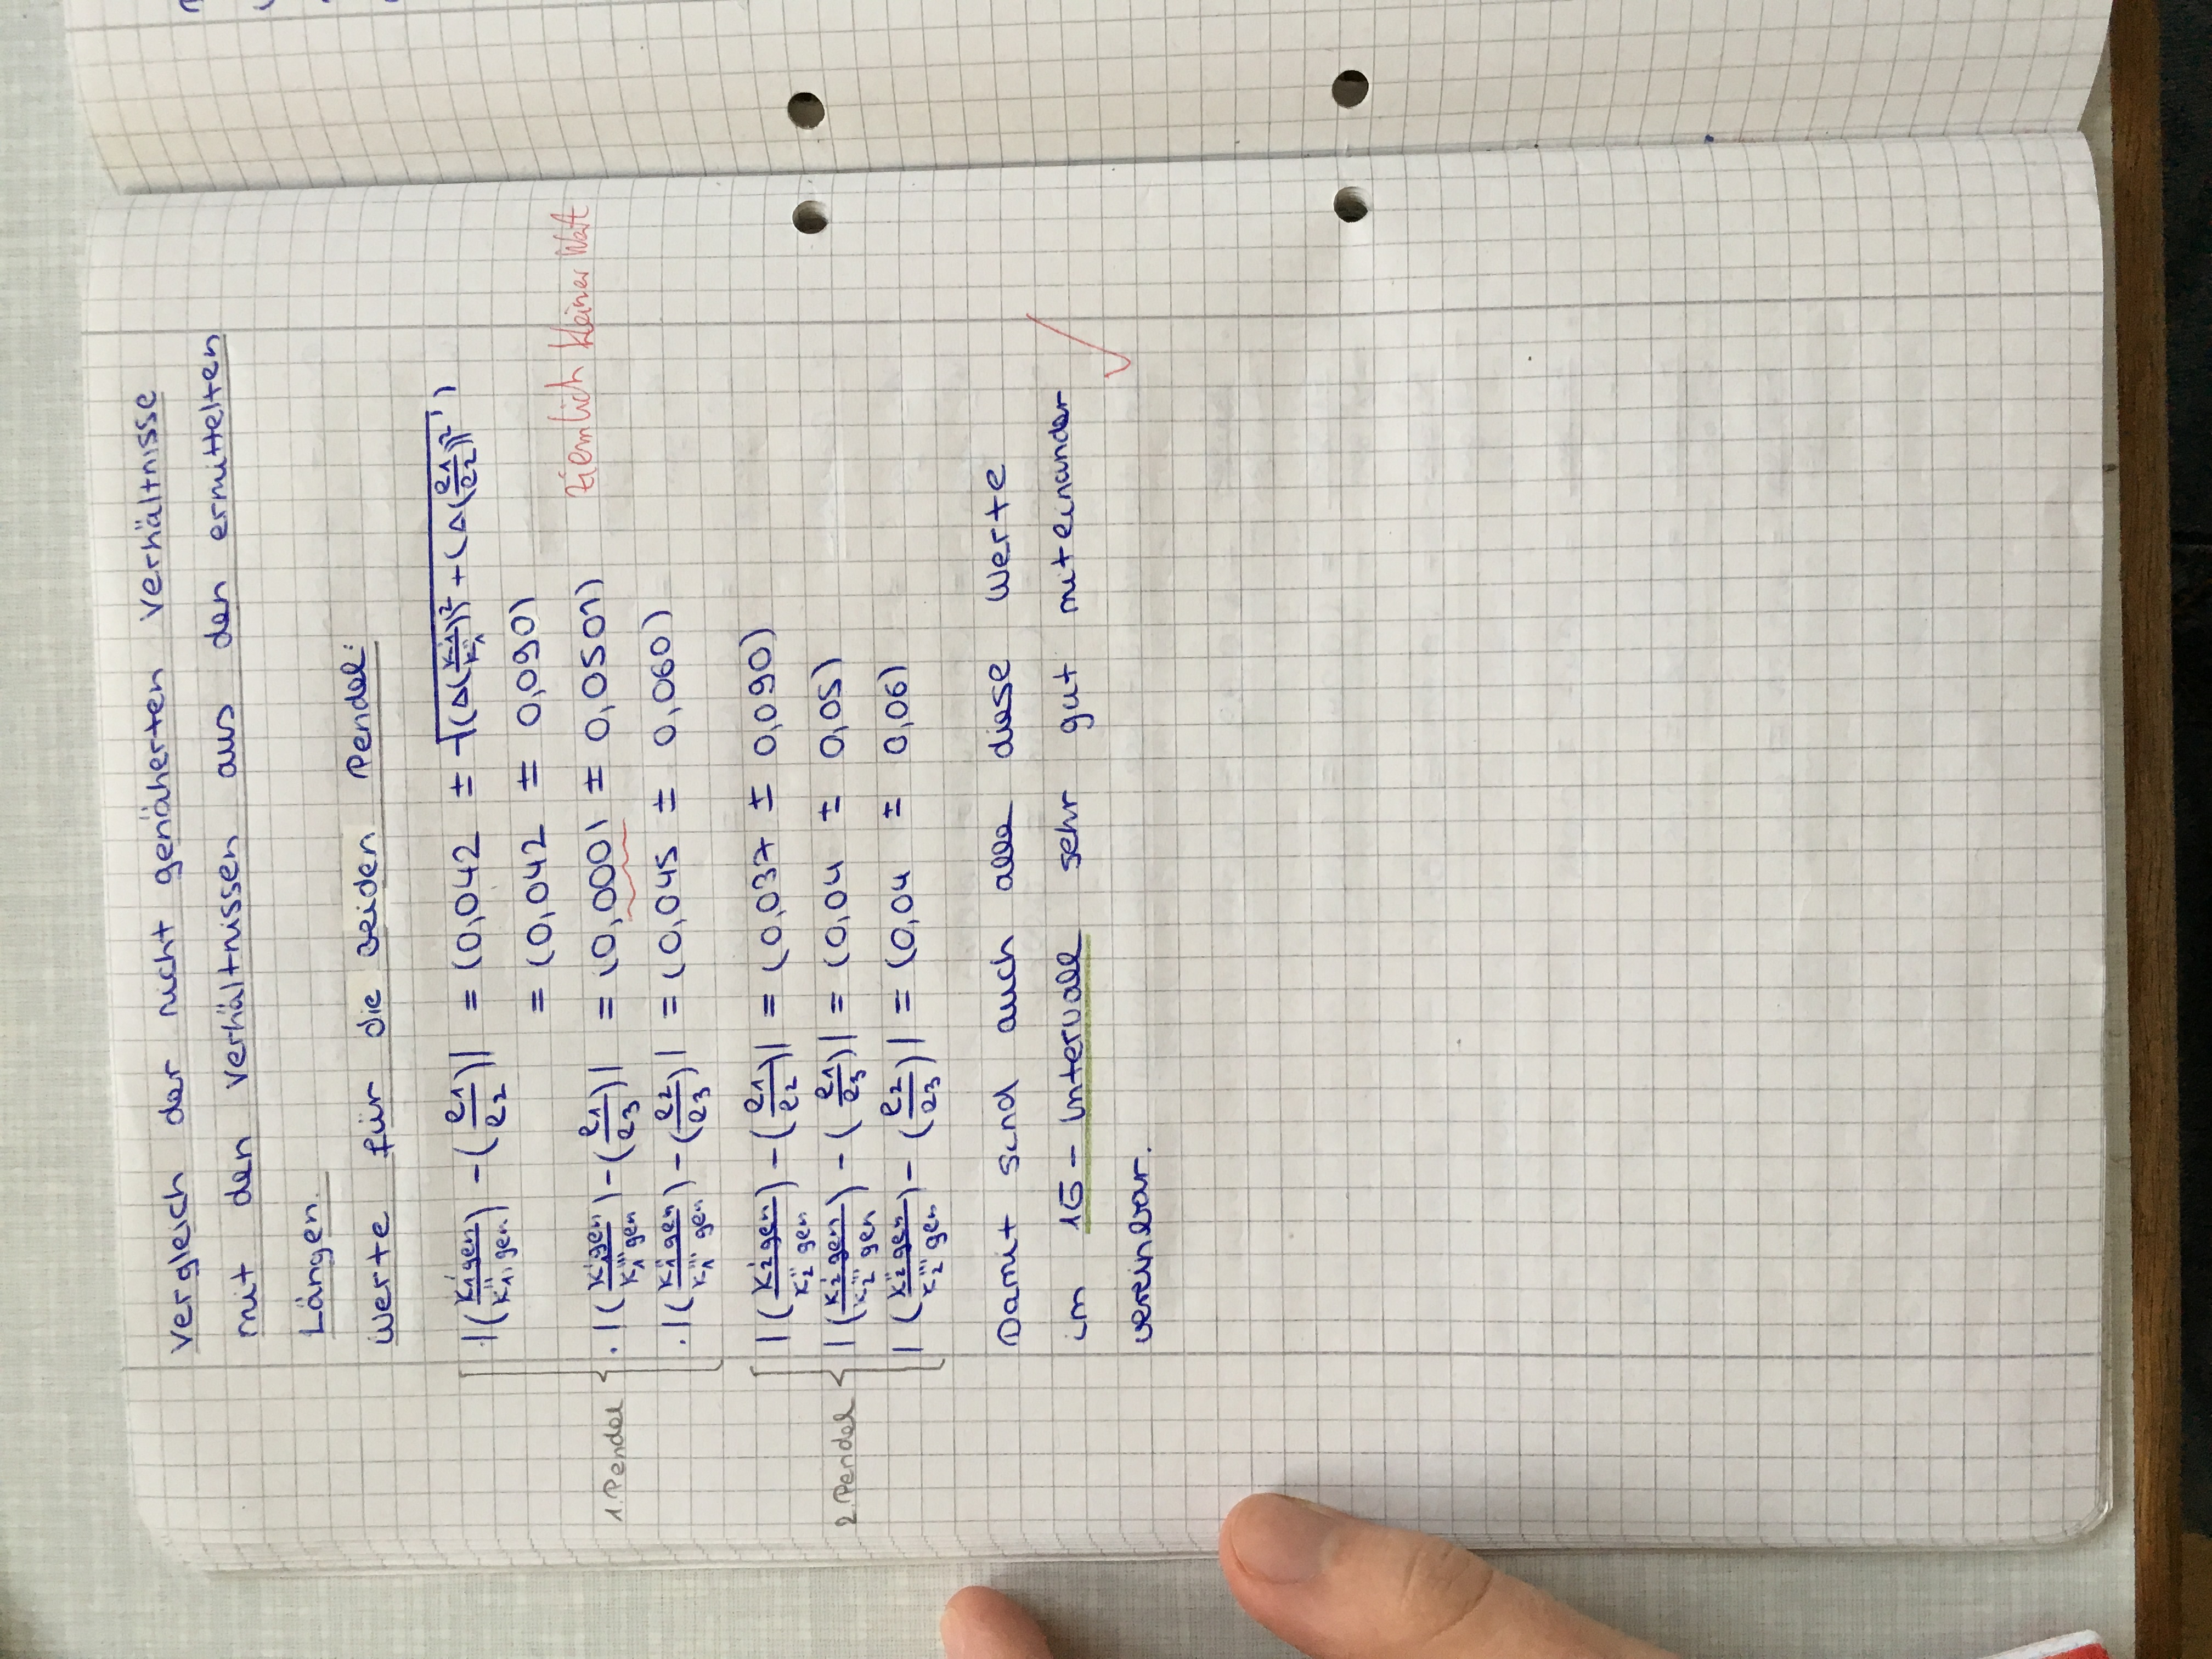 Vergleich der nicht genäherten Verhältnisse
mit den Verhältnissen aus den ermittelten
Längen.
Werte für die beiden Pendel:
|(κ₁' gen / κ₁'', gen) - (l₁/l₂)| = (0,042 ± √((Δ(κ₁'/κ₁''))² + (Δ(l₁/l₂))²))
= (0,042 ± 0,090)
1. Pendel · |(κ₁' gen / κ₁''' gen) - (l₁/l₃)| = (0,0001 ± 0,0501) ziemlich kleiner Wert
· |(κ₁'' gen / κ₁''' gen) - (l₂/l₃)| = (0,045 ± 0,060)
|(κ₂' gen / κ₂'' gen) - (l₁/l₂)| = (0,037 ± 0,090)
2. Pendel |(κ₂' gen / κ₂''' gen) - (l₁/l₃)| = (0,04 ± 0,05)
|(κ₂'' gen / κ₂''' gen) - (l₂/l₃)| = (0,04 ± 0,06)
Damit sind auch alle diese Werte
im 1σ-Intervall sehr gut miteinander
vereinbar.